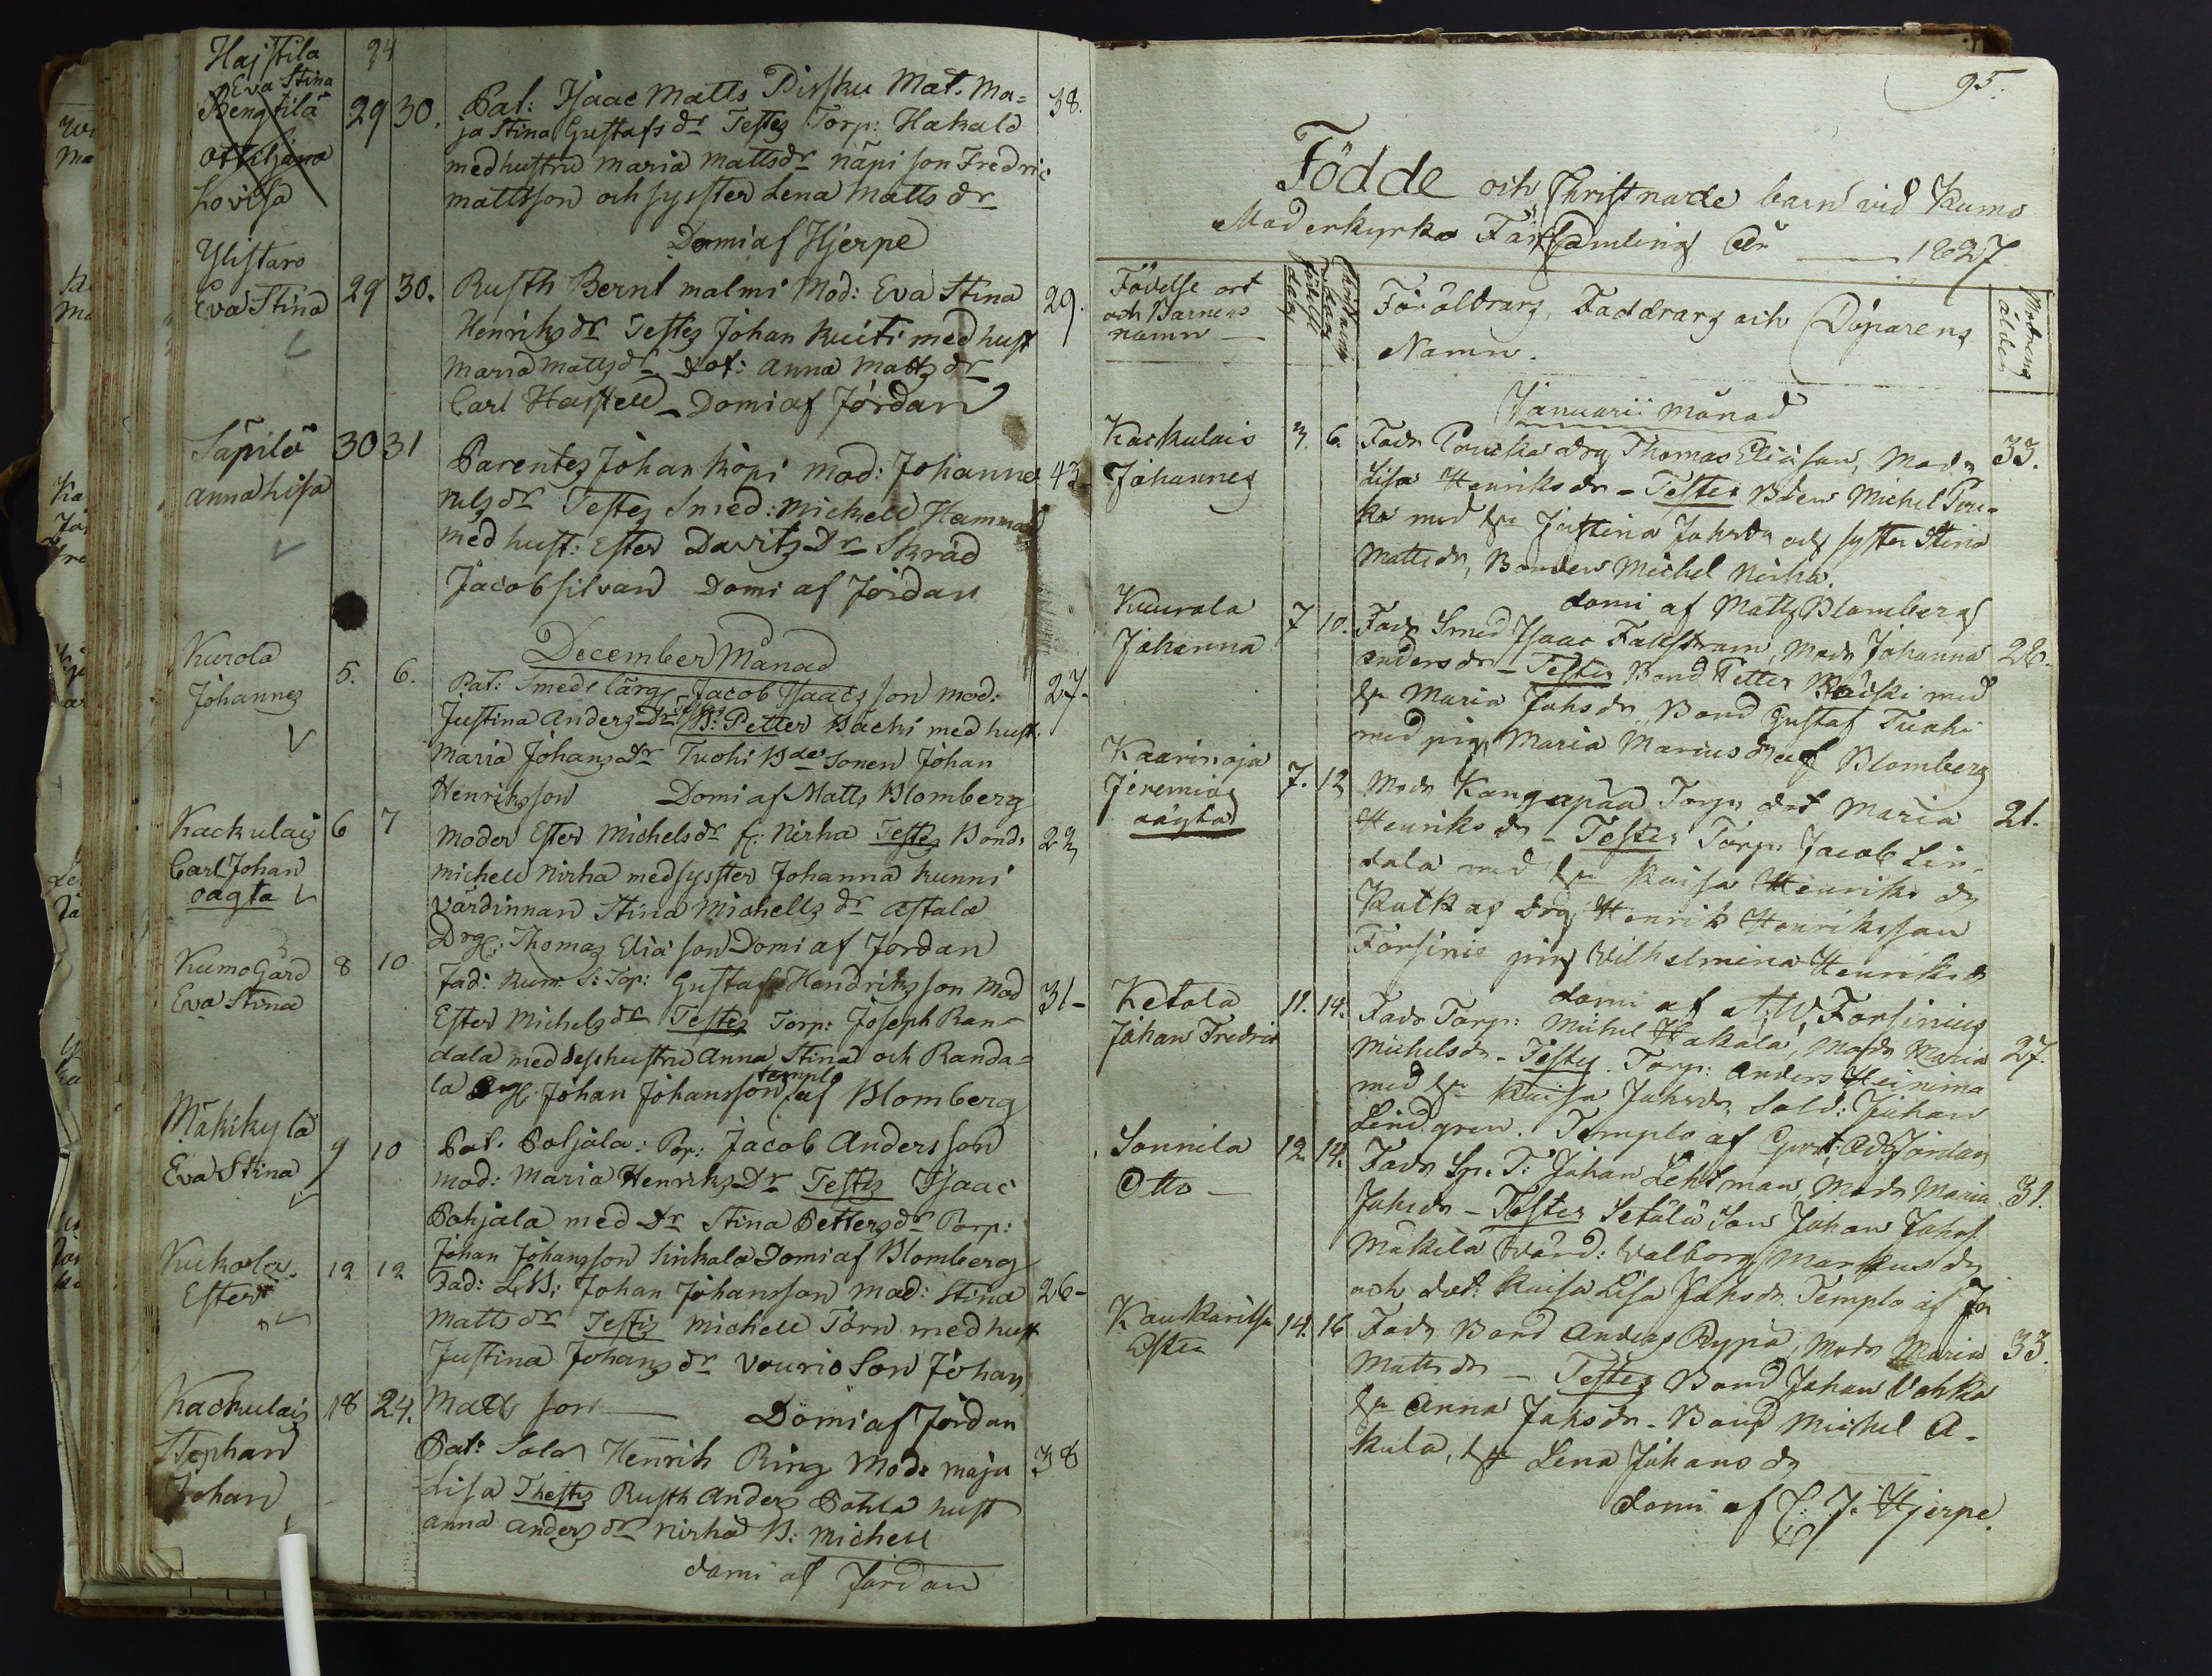 Hajstila 24
Eva Stina
Bengtilä 29 30. Pat: Isaac Matts Pirsku Mat. Ma= 38.
Ottiljana ja Stina Gustafs dr Testes Torp: Hakala
Lovisa med hustru Maria Mattsdr näpi son Fredric
mattsson och sysster Lena Matts dr
Domi af Hjerpe
Ylistaro
Eva Stina 29 30. Rusth Bernt malmi Mod: Eva Stina 29.
Henriks dr Testes Johan Kuiti med hust
Maria Matts dr Dot: Anna Matts dr
Carl Hastell Domi af Jordan
Säpilä 30 31
Parentes Johan Köpi mod: Johanna 43
Anna Lisa
nils dr Testes Smed: Michell Hammar
med hust: Ester Davits Dr Skräd
Jacob silvan Domi af Jordan
December Månad
Kurola 5. 6. Pat: Smeds lärg Jacob Isaacsson mod: 27.
Johannes Justina Anders Dr Testes B: Petter Bäcki med hust.
Maria Johans dr Tuohi Bde Sonen Johan
Henriksson Domi af Matts Blomberg
Kackulais 6 7 Moder Ester Michels dr fr: Nirha Testes Bond: 22
Carl Johan michell Nirha med sysster Johanna kunni
oägta värdinnan Stina Michells dr Astala
Drg: Thomas Elia son Domi af Jordan
Kumo Gård 8 10 Fad: Kum. S: Tor: Gustaf Hendriksson Mod 31-
Eva Stina Ester Michels dr Testes Torp: Joseph Ran-
dala med dess hustru Anna Stina och Randa=
la Drg: Johan Johansson templ af Blomberg
Mäkikylä 9 10 Pat. Pohjala: Por: Jacob Andersson
Eva Stina mod: Maria Henriks Dr Testes Isaac
Pohjala med Dr Stina Petters dr Porp:
Johan Johansson Sinkala Domi af Blomberg
Kukola. 12 12 Fad: L. B: Johan Johansson Mod: Stina 26-
Ester Matts dr Testis Michell Törn med hust
Justina Johans dr Vourio Son Johan
Kackulais 18 24. Matts son Domi af Jordan
Stephan Pat: Sold Henrik Ring Mod: Maja 38
Johan Lisa Thestes Rusth Anders Pohla hust
anna Anders dr Nirha B: Michell
domi af Jordan
95.
Födde och Christnade barn vid Kumo
Moderkyrko Församling År 1827
Födelse ort
och Barnens
namn
födelse
dag
Christnande
dag
Föräldrars, Faddrars och Döparens
Namn.
Modrens
ålder
Januarii månad
Kackulais 3. 6. Fadr Pouska drg Thomas Eliason, Modr 33.
Johannes Lisa Henriks dr - Testes Bden Michel Pou-
ka med hu Justina Johsdr och syster Stina
Matts dr, Bonden Michel Nirha.
domi af Matts Blomberg
Kuurola 7 10. Fadr Smed Isaac Fallstram, Modr Johanna 28.
Johanna Anders dr - Testes Bond Petter Bäcki med
hu Maria Johs dr Bond Gustaf Tuohi
med pig Maria Marcus dr af Blomberg
Kaarinoja 7. 12 Modr Kangapää Torps dot Maria 21.
Jeremias Henriks dr - Testes Torp: Jacob Lin-
oägta dala med hu Kaisa Henriks dr
Kutka drg Henrik Henrikssan
Forsinis pig Vilhelmina Henriks dr
domi af A. W. Forsinius
Ketola 11. 14. Fadr Torp: Michel Hakala, Modr Maria 27.
Johan Fredric Michels dr - Testes Torp: Anders Heinima
med hu Kaisa Johsdr, Sold: Johan
Lindgren. Templo af Jordan
Sonnila 12 14. Fadr Sp: T: Johan Lehtman Modr Maria 31.
Otto Johs dr - Testes Setälä Son Johan Johs.
Mäkelä Värd: Valborg Markus dr
och dot: Kaisa Lisa Johs dr Templo af Jor
Kaukaritsa 14. 16 Fadr Bond Anders Rypä, Modr Maria 33.
Ester Matts dr - Testes Bond Johan Vahka
hu Anna Johs dr - Bond Michel A-
kula, hu Lena Johans dr
domi af C. J. Hjerpe.